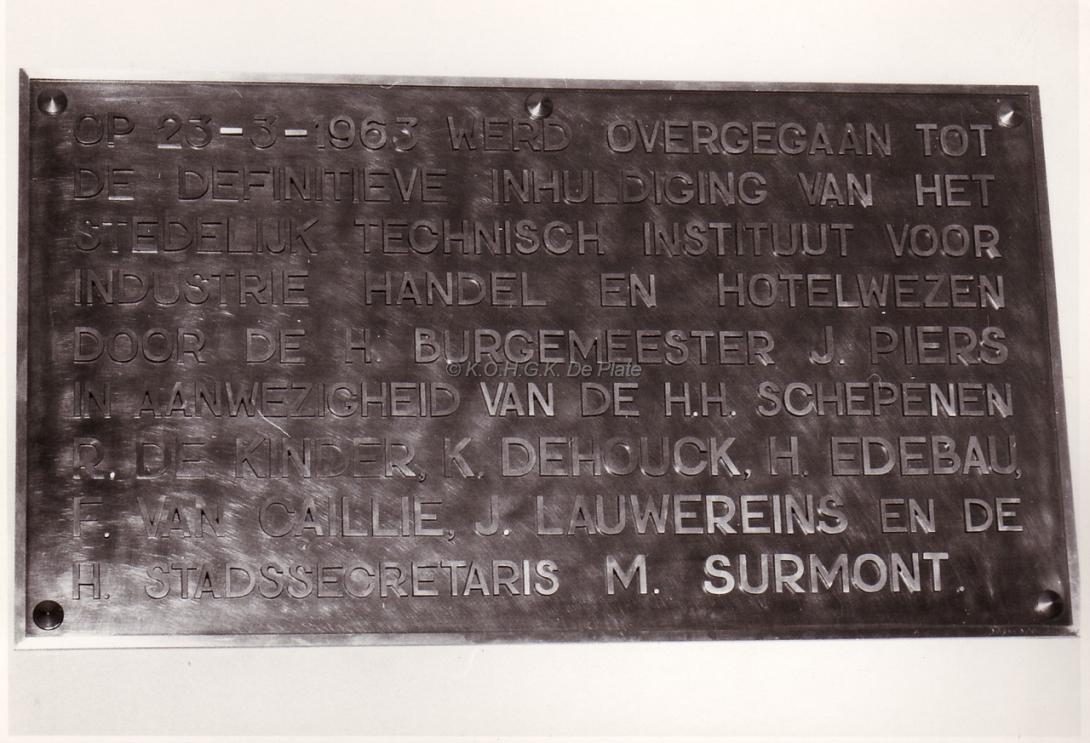 OP 23-3-1963 WERD OVERGEGAAN TOT
DE DEFINITIEVE INHULDIGING VAN HET
STEDELIJK TECHNISCH INSTITUUT VOOR
INDUSTRIE HANDEL EN HOTELWEZEN
DOOR DE H. BURGEMEESTER J. PIERS
© K.O.H.G.K. De Plate
IN AANWEZIGHEID VAN DE H.H. SCHEPENEN
R. DE KINDER, K. DEHOUCK, H. EDEBAU,
F. VAN CAILLIE, J. LAUWEREINS EN DE
H. STADSSECRETARIS M. SURMONT.